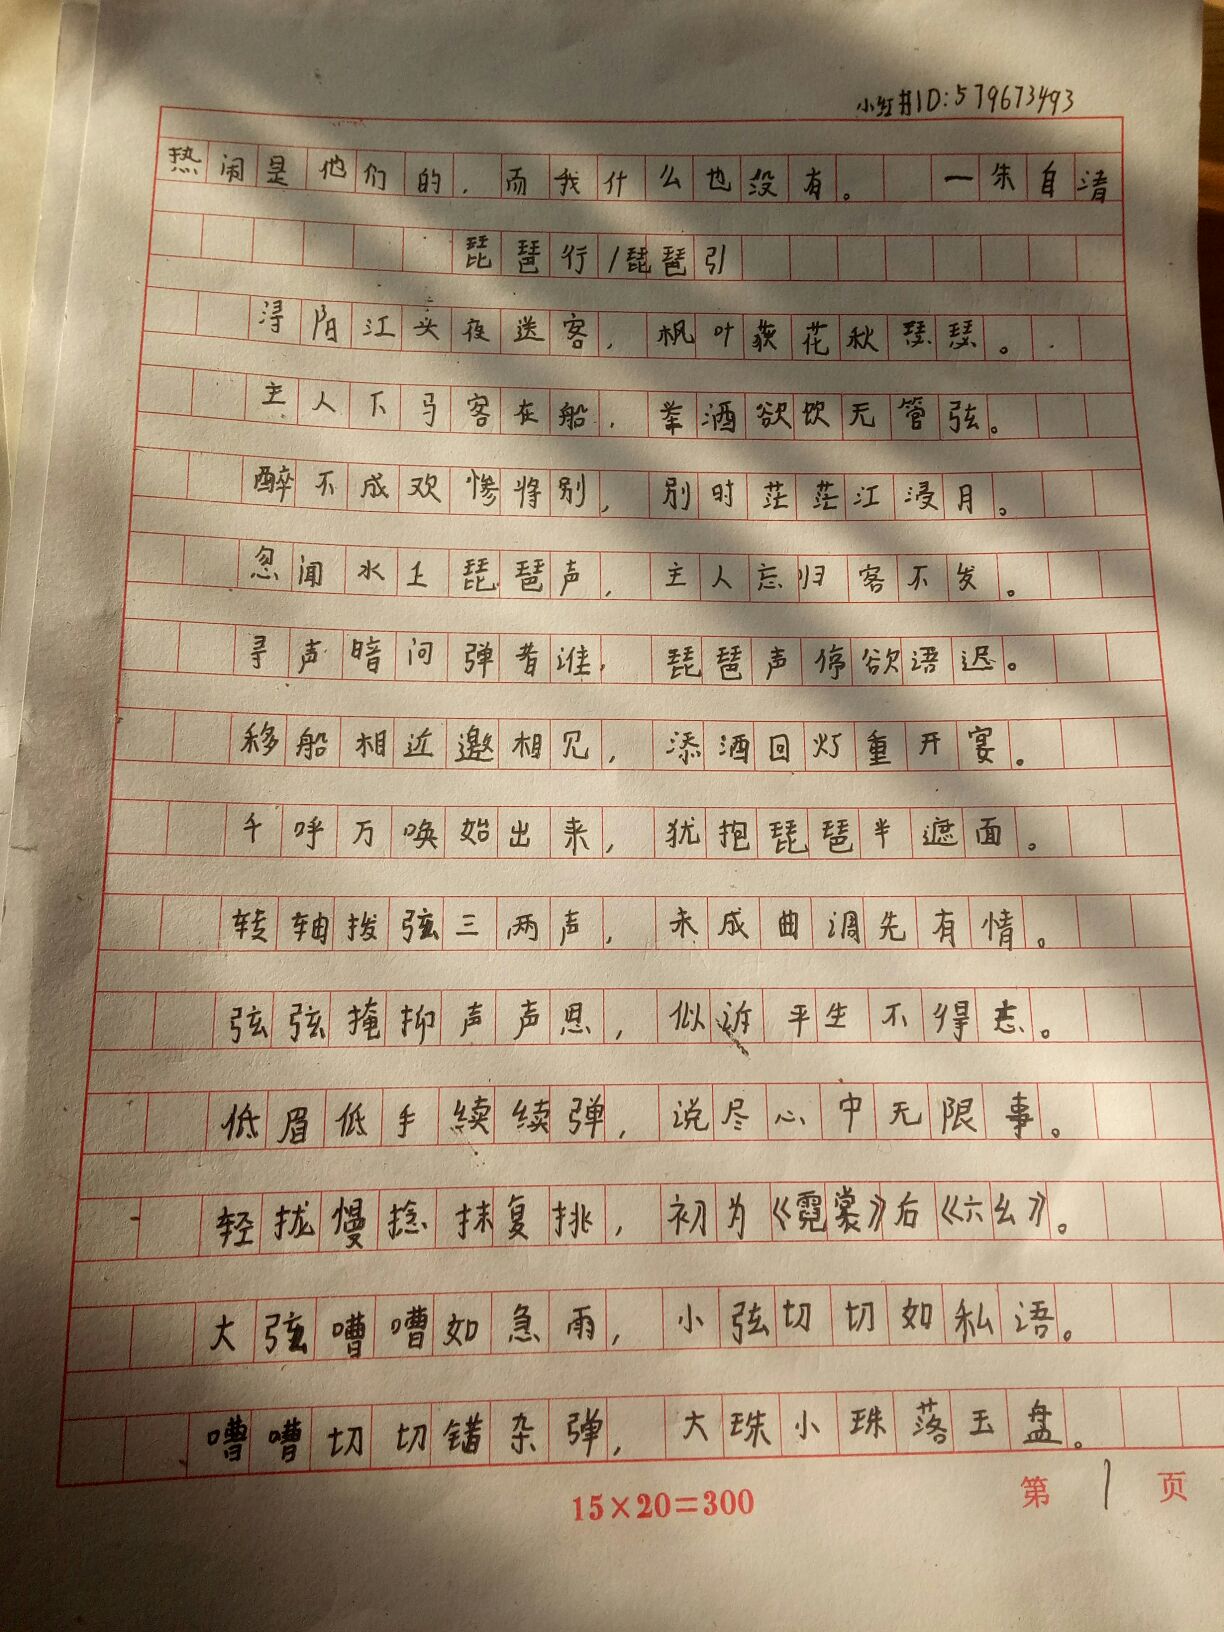 小红书ID:579673493
热闹是他们的，而我什么也没有。 一朱自清
琵琶行/琵琶引
浔阳江头夜送客，枫叶荻花秋瑟瑟。
主人下马客在船，举酒欲饮无管弦。
醉不成欢惨将别，别时茫茫江浸月。
忽闻水上琵琶声，主人忘归客不发。
寻声暗问弹者谁，琵琶声停欲语迟。
移船相近邀相见，添酒回灯重开宴。
千呼万唤始出来，犹抱琵琶半遮面。
转轴拨弦三两声，未成曲调先有情。
弦弦掩抑声声思，似诉平生不得志。
低眉低手续续弹，说尽心中无限事。
轻拢慢捻抹复挑，初为《霓裳》后《六幺》。
大弦嘈嘈如急雨，小弦切切如私语。
嘈嘈切切错杂弹，大珠小珠落玉盘。
15×20=300
第 1 页